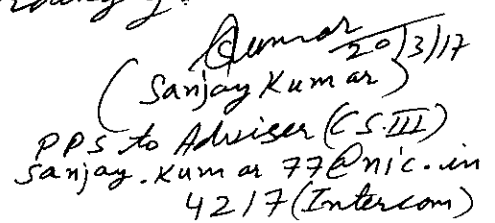 Kumar
20/3/17
(Sanjay Kumar)
PPS to Adviser (CS.III)
sanjay.kumar77@nic.in
4217 (Intercom)